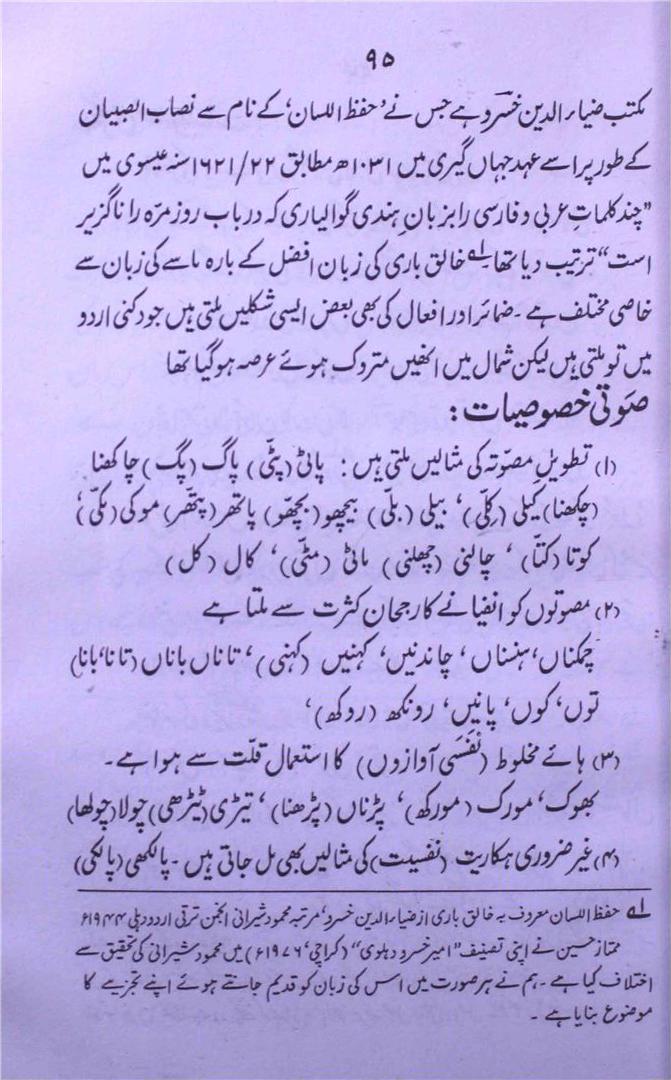 ۹۵
مکتب ضیاء الدین خسرو ہے جس نے ’حفظ اللسان‘ کے نام سے نصاب الصبیان
کے طور پر اسے عہد جہاں گیری میں ۱۰۳۱ھ مطابق ۲۲/۱۶۲۱ سنہ عیسوی میں
”چند کلماتِ عربی و فارسی را بزبانِ ہندی گوالیاری کہ در باب روز مرّہ را ناگزیر
است“ ترتیب دیا تھا۔ ۱ے خالق باری کی زبان افضل کے بارہ ماسے کی زبان سے
خاصی مختلف ہے۔ ضمائر اور افعال کی بھی بعض ایسی شکلیں ملتی ہیں جو دکنی اردو
میں تو ملتی ہیں لیکن شمال میں انھیں متروک ہوئے عرصہ ہو گیا تھا
صوتی خصوصیات :
(۱) تطویلِ مصوّتہ کی مثالیں ملتی ہیں : پاٹی (پٹّی) پاگ (پگ) چاکھنا
(چکھنا) کیلی (کِلّی)، بیلی (بلّی) بیچھو (بچھّو) پاتھر (پتھّر) موکی (مُکّی)،
کوتا (کتّا) ، چالنی (چھلنی) ماٹی (مٹّی)، کال (کل)
(۲) مصوتوں کو انفیانے کا رجحان کثرت سے ملتا ہے
چمکناں، ہنسناں ، چاندنیں، کہنیں (کہنی)، تاناں باناں (تانا، بانا)
توں، کوں، پانیں، رونکھ (روکھ)،
(۳) ہائے مخلوط (نَفَسی آوازوں) کا استعمال قلّت سے ہوا ہے۔
بھوک، مورک (مورکھ)، پڑناں (پڑھنا) ، تیڑی (ٹیڑھی) چولا (چولھا)
(۴) غیر ضروری ہکاریت (نفسیت) کی مثالیں بھی مل جاتی ہیں۔ پالکھی (پالکی)
۱ے حفظ اللسان معروف بہ خالق باری از ضیاء الدین خسرو، مرتبہ محمود شیرانی انجمن ترقی اردو دہلی ۱۹۴۴ء
ممتاز حسین نے اپنی تصنیف ”امیر خسرو دہلوی“ (کراچی، ۱۹۷۶ء) میں محمود شیرانی کی تحقیق سے
اختلاف کیا ہے۔ ہم نے ہر صورت میں اس کی زبان کو قدیم جانتے ہوئے اپنے تجزیے کا
موضوع بنایا ہے۔